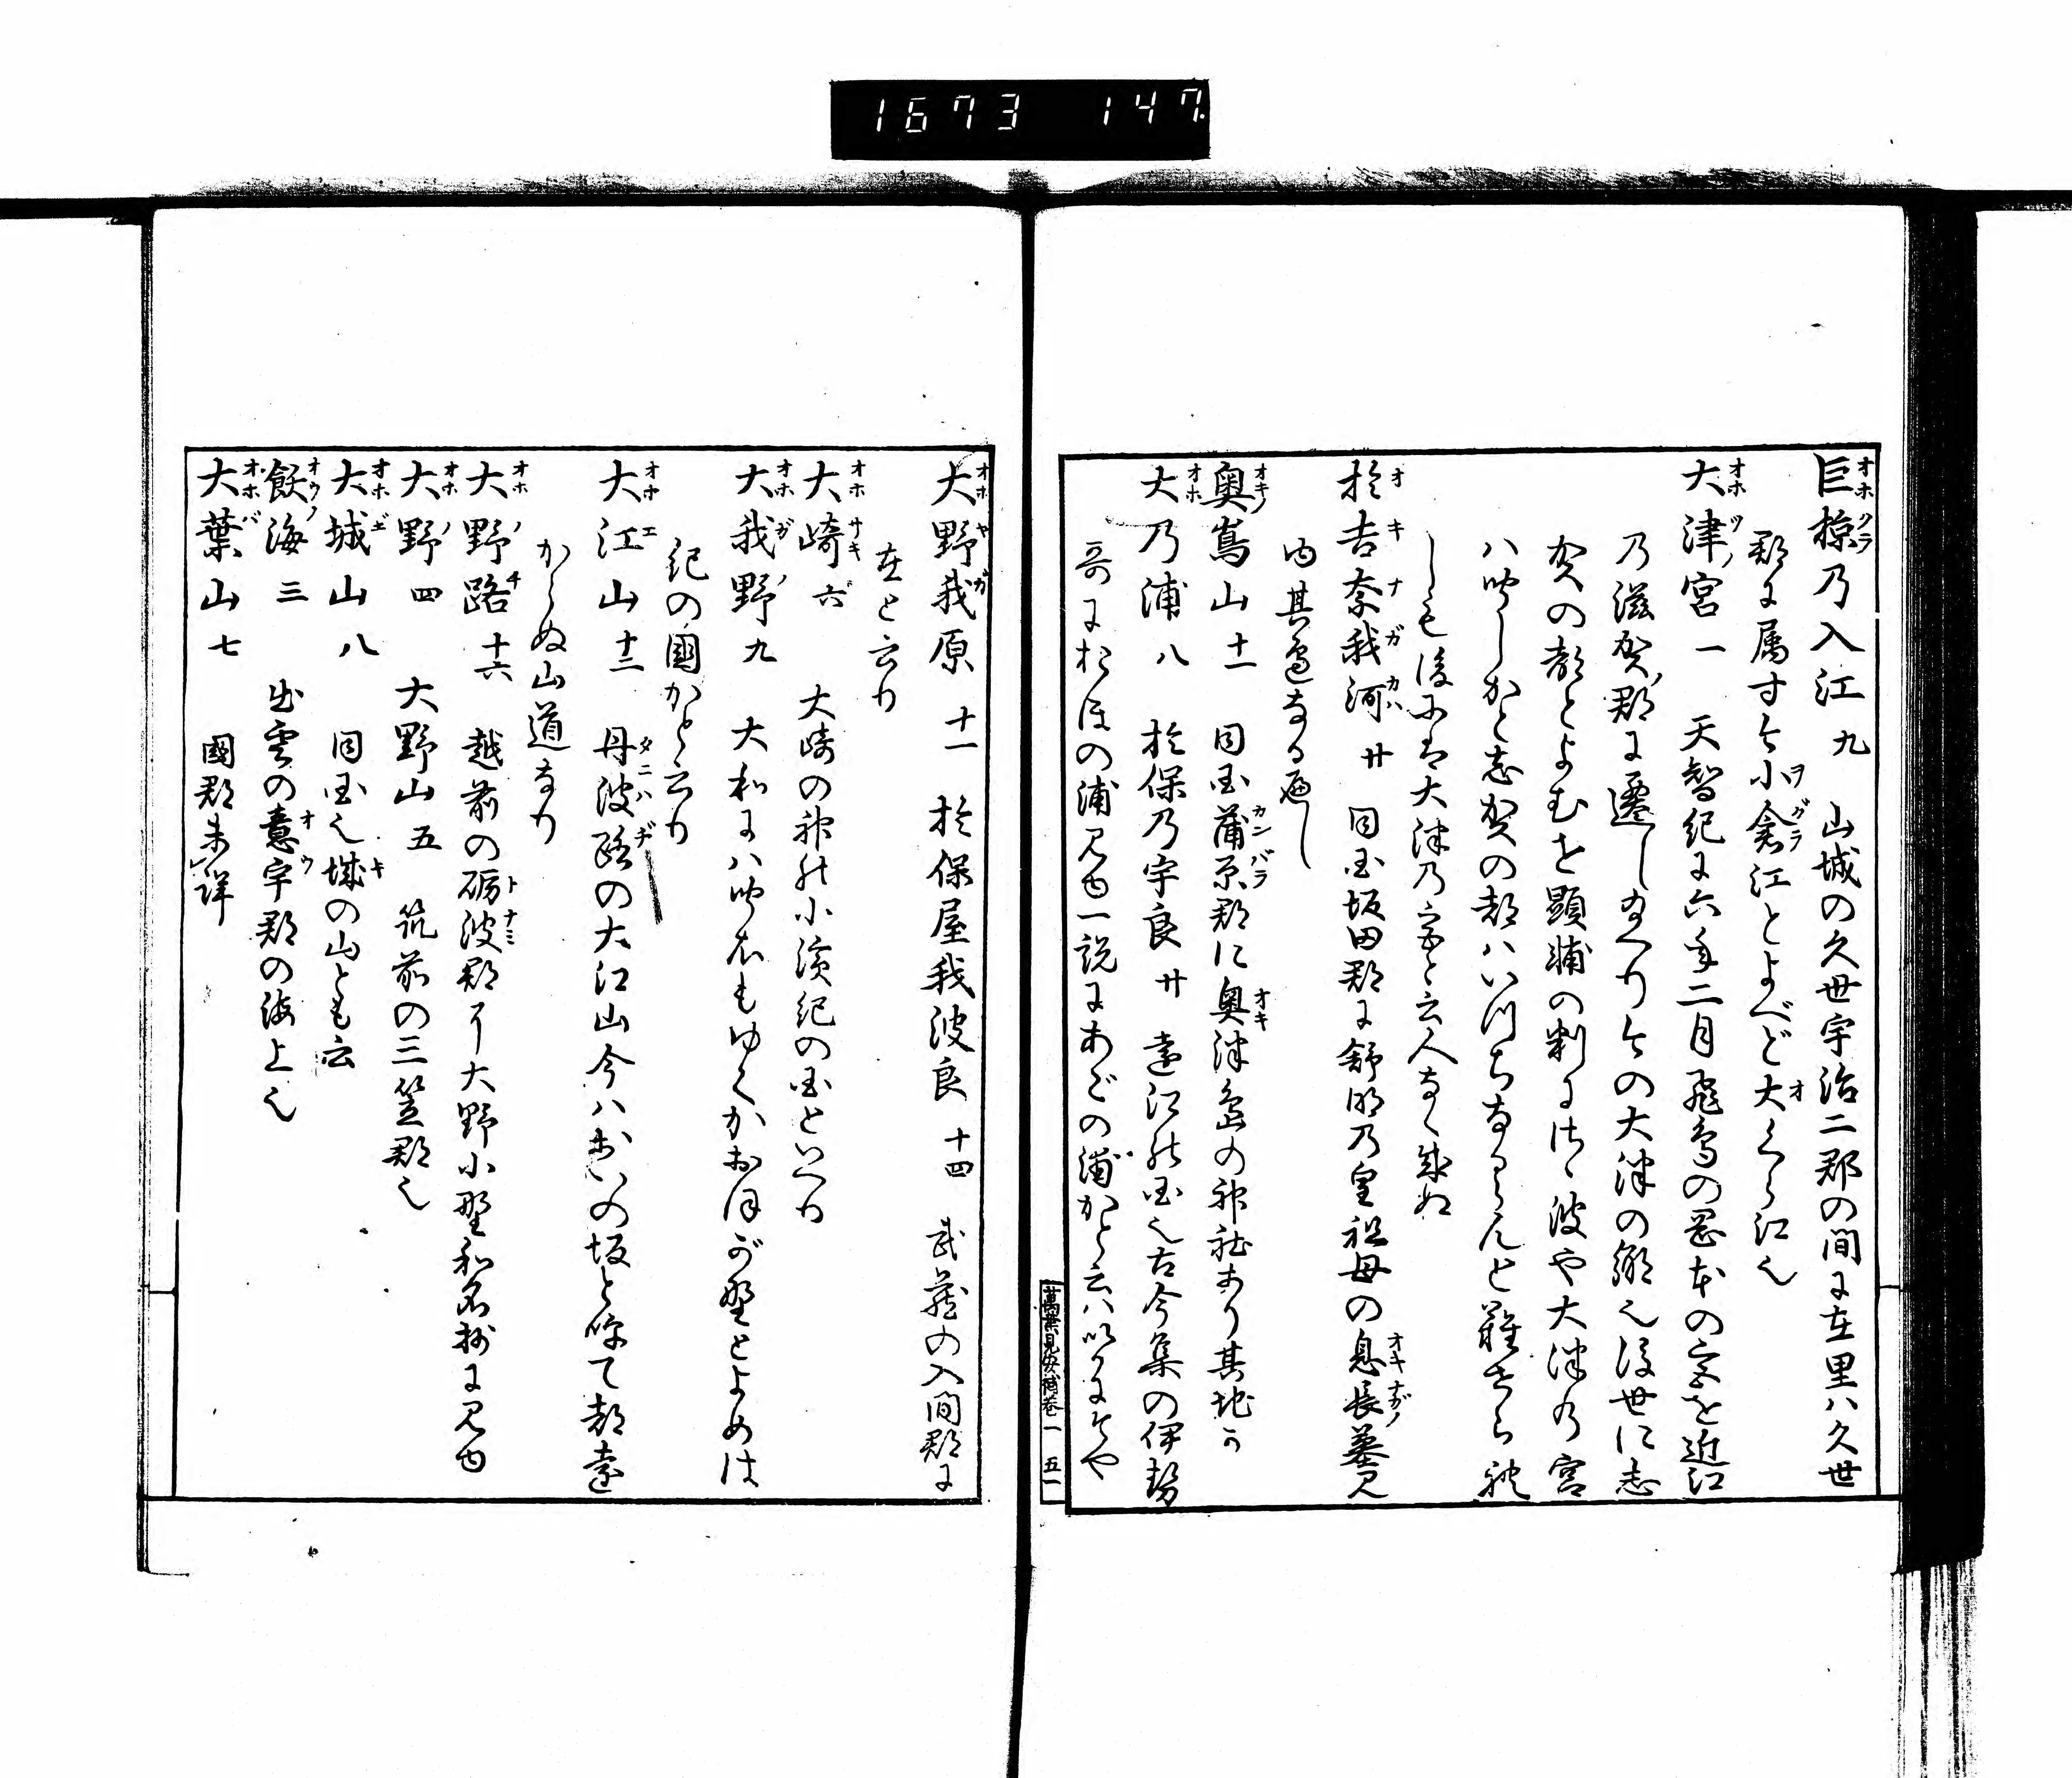 1673 147
巨椋乃入江 九 山城の久世宇治二郡の間に在里ハ久世
郡に属す今小倉江とよべど大くら江也
大津宮 一 天智紀に六年二月飛鳥の岡本の宮を近江
乃滋賀郡に遷し給へり今の大津の郷也後世に志
賀の都とよむを顕輔の判にはゝ波や大津乃宮
ハ しかと志賀の都ハいつちならんと難せら禮
しも後には大津乃宮と云人なく成ぬ
於吉奈我河 廿 同國坂田郡に舒明乃皇祖母の息長墓見
ゆ其邉なる遍し
奥嶌山 十一 同國蒲原郡に奥津嶋の神社あり其地か
大乃浦 八 於保乃宇良 廿 遠江能國也古今集の伊勢
哥におほの浦見ゆ一説にあごの浦かと云ハいかにそや
萬葉見安補 巻一 五一
大野我原 十一 於保屋我波良 十四 武蔵の入間郡に
在と云り
大崎 六 大崎の神能小濱紀の国といへり
大我野 九 大和にハ もゆくかおほが野とよめは
紀の國かと云り
大江山 十二 丹波路の大江山今ハおいの坂と呼て都遠
からぬ山道なり
大野路 十六 越前の砺波郡に大野小野和名抄に見ゆ
大野 四 大野山 五 筑前の三笠郡也
大城山 八 同國也城の山とも云
飫海 三 出雲の意宇郡の海上也
大葉山 七 國郡未詳